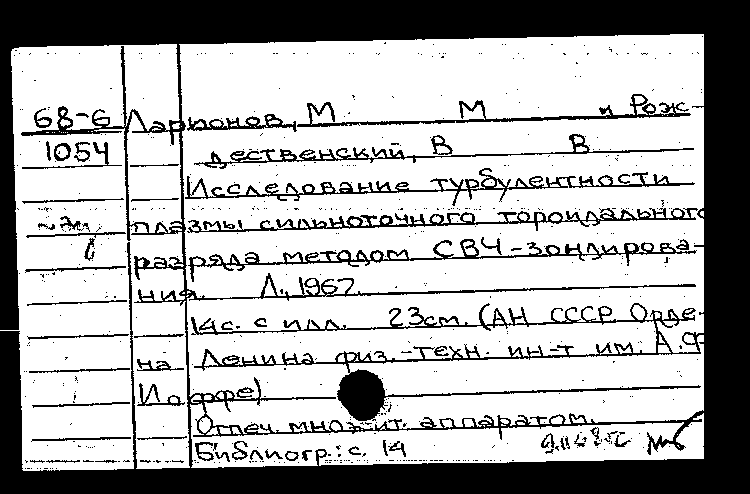 68-6 Ларионов, М М и Рож-
1054 дественский, В В
Исследование турбулентности
плазмы сильноточного тороидального
разряда методом СВЧ-зондирова-
ния. Л., 1967.
14с. с илл. 23см. (АН СССР Орде-
на Ленина физ.-техн. ин-т им. А.Ф
Иоффе)
Отпеч. множит. аппаратом.
Библиогр.: с. 14